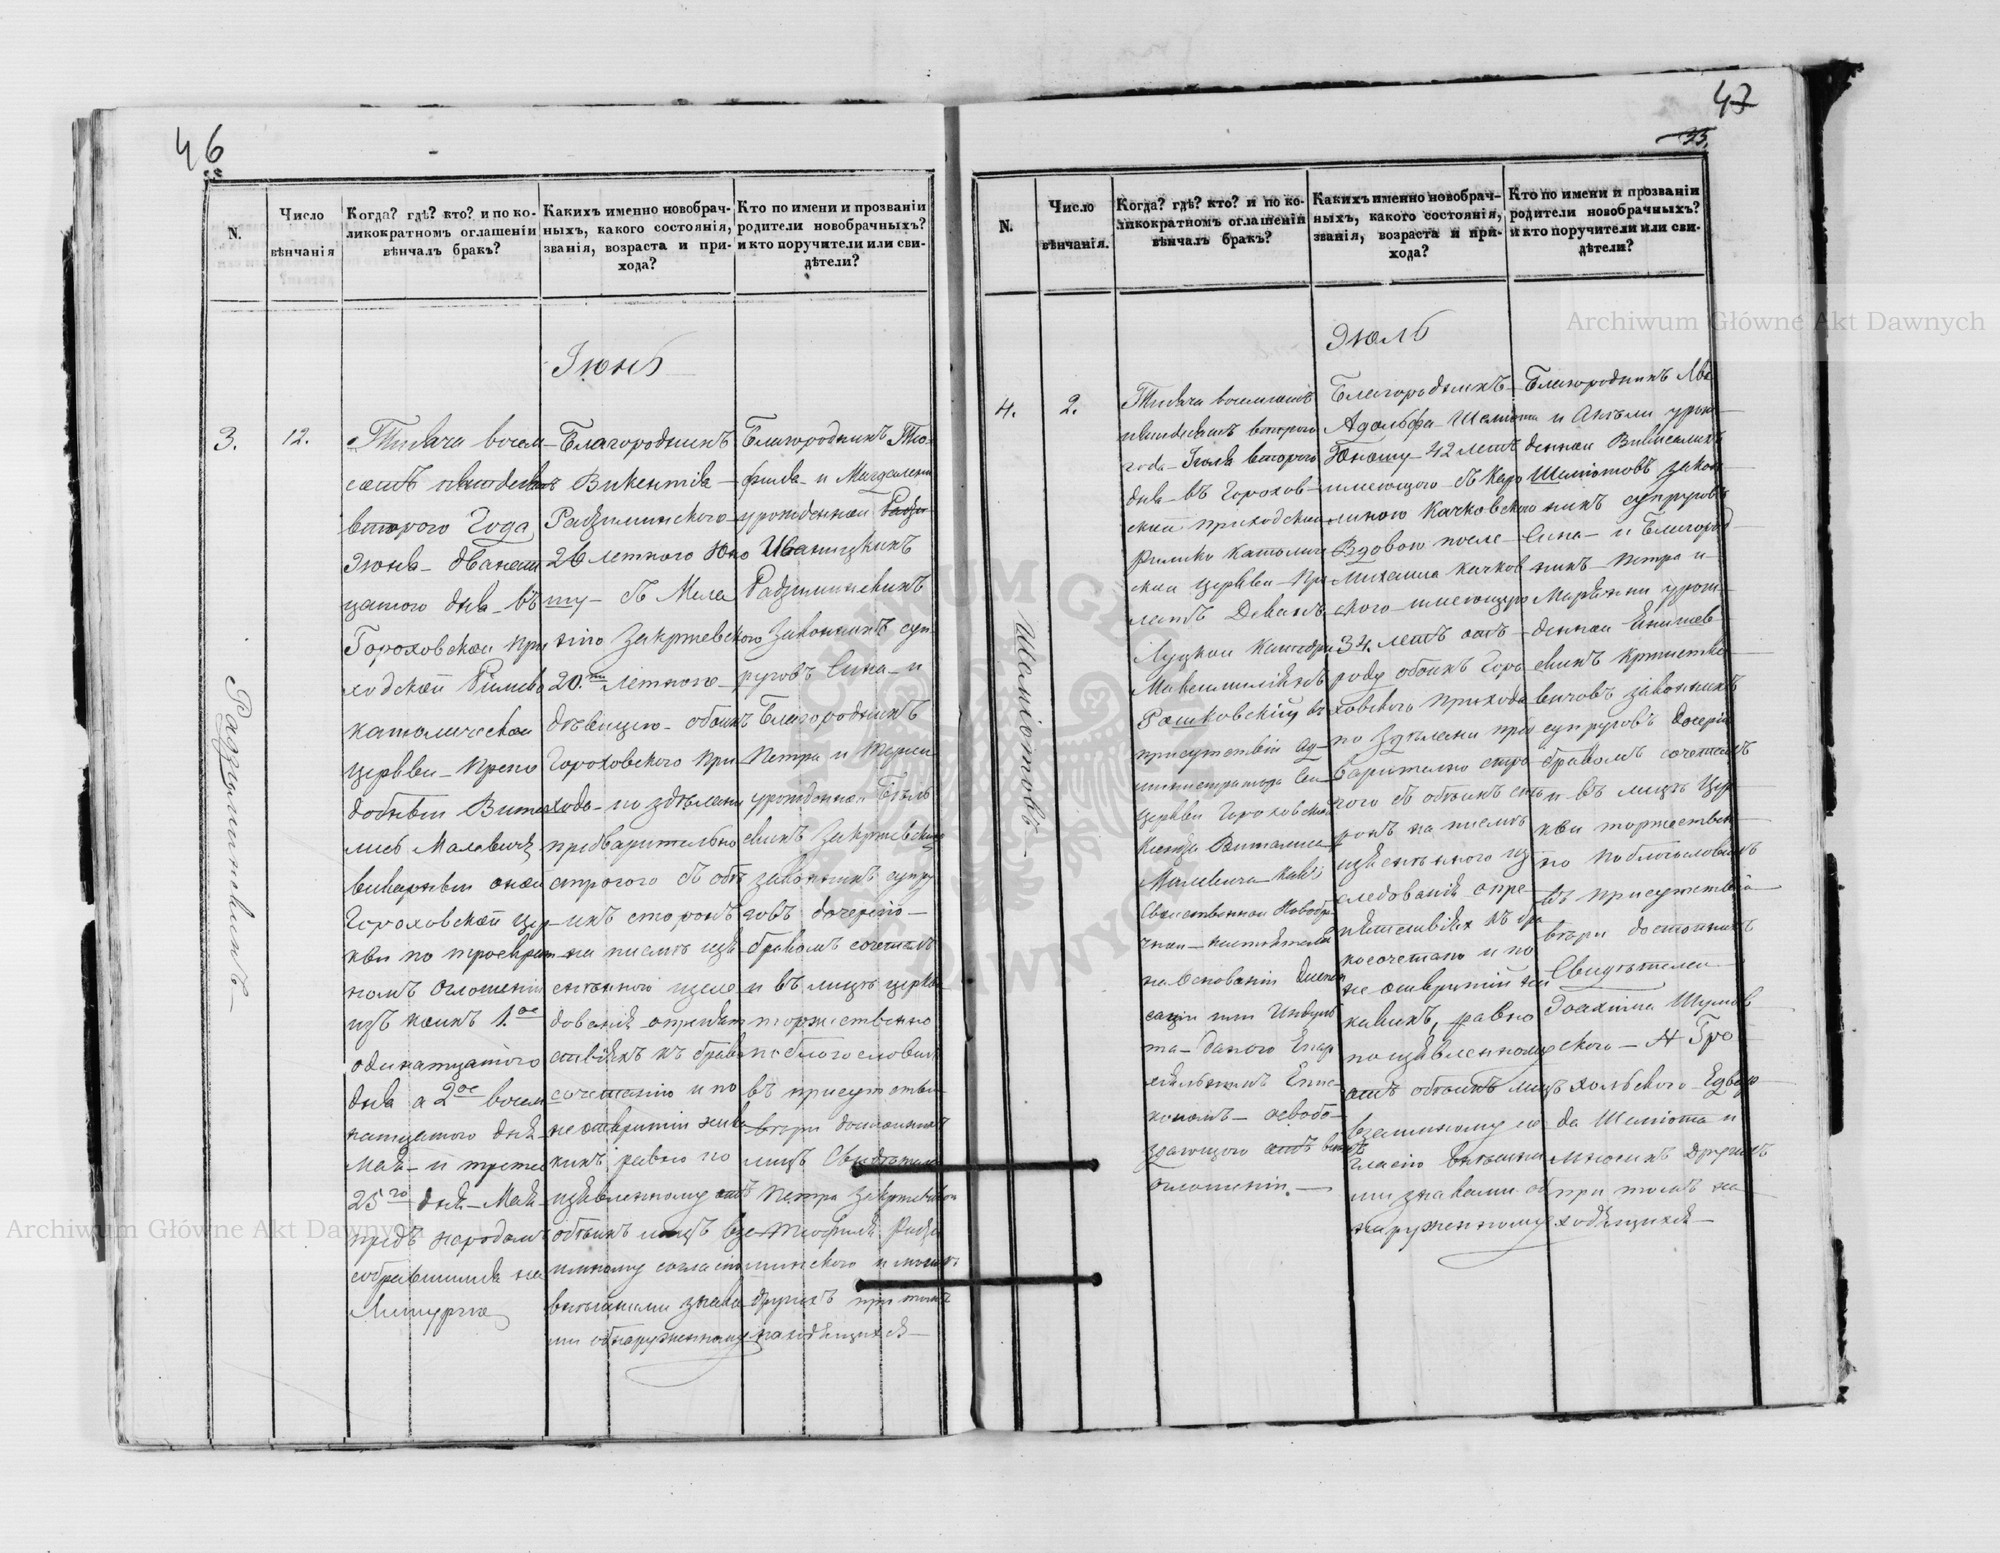 46
N.
Число
вѣнчанія
Когда? гдѣ? кто? и по ко-
ликократномъ оглашеніи
вѣнчалъ бракъ?
Какихъ именно новобрач-
ныхъ, какого состоянія,
званія, возраста и при-
хода?
Кто по имени и прозваніи
родители новобрачныхъ?
и кто поручители или сви-
дѣтели?
Іюнь
3.
12.
Радзиминскихъ
Тысяча восем
сотъ пятдесят
втораго Года
Іюня двана
цатого дня въ
Гороховской При
ходской Римско
католической
Церкви Препо
добный Вита
лисъ Малевичъ
викарный оной
Гороховской Цер
кви по троекрат
номъ оглошеніи
изъ коихъ 1.ое
одинатцатого
дня а 2ое восем
натцатого дня
Мая и третье
25го дня Мая
предъ народомъ
собравшимся на
Литургію
Благородныхъ
Викентія
Радзиминского
26 летнего Юно
шу съ Мела
нію Закржевского
20.ти летнею
дѣвицею обоихъ
Гороховского При
хода по здѣлани
предварительно
строгого съ обѣ
ихъ сторонъ
на письмѣ изъ
сненного изсле
дованія о препят
ствіяхъ къ брако
сочетанію и по
не открытіи ника
кихъ равно по
изъявленному отъ
обѣихъ лицъ вза
имному согласію
внѣшними знака
ми обнаруженному
Благородныхъ Тео
фила и Магдалены
урожденной
Иваницкихъ
Радзиминскихъ
законныхъ суп
руговъ Сына и
Благородныхъ
Петра и Терезы
урожденной
Закржевских
законныхъ супру
говъ дочерію
бракомъ сочеталъ
и въ лицѣ церкви
торжественно
поблогословилъ
въ присутстви
вѣры достойныхъ
лицъ Свидѣтелей
Петра Закржевского
Теофиля Радзи
минского и многихъ
другихъ при томъ
находящихся
47
N.
Число
вѣнчанія.
Когда? гдѣ? кто? и по ко-
ликократномъ оглашеніи
вѣнчалъ бракъ?
Какихъ именно новобрач-
ныхъ, какого состоянія,
званія, возраста и при-
хода?
Кто по имени и прозваніи
родители новобрачныхъ?
и кто поручители или сви-
дѣтели?
Іюль
4.
2.
Шеміотовъ
Тысяча восемсотъ
пятдесятъ втораго
года Іюля второго
дня въ Горохов
ской приходской
Римско Католиче
ской Церкви
Деканъ
Луцкой Катедры
Максимиліянъ
Рошковскій въ
присутствіи Ад
министратора сей
Церкви Гороховской
Ксендза Виталиса
Малевича
на основаніи Диспен
саціи или Индуль
та даного Епар
хіяльнымъ Епис
копомъ освобо
ждающого отъ всѣхъ
оглошеній.
Благородныхъ
Адольфа Шеміота
Юношу 42 летъ
имеющого съ Каро
линою Качковскою
Вдовою после
Михаила Качков
ского имеющую
34 летъ отъ
роду обоихъ Горо
ховского прихода
по здѣлани пред
варително стро
гого съ обѣихъ сто
ронъ на письмѣ
изъясненного из
следованія о пре
пятствіяхъ къ бра
косочетанію и по
не открытіи ни
какихъ, равно
по изъявленному
отъ обѣихъ лицъ
взаимному со
гласію внѣшни
ми знаками об
наруженному
Благородныхъ
и Анели урож
денной
Шеміотовъ закон
ныхъ супруговъ
Сына и Благород
ныхъ Петра и
Маріянни урож
денной
законныхъ
супруговъ Дочерію
бракомъ сочеталъ
и въ лицѣ Цер
кви торжествен
но поблогословилъ
въ присутствіи
вѣры достойныхъ
Свидѣтелей
Іоахима
ского
хольского Едвар
да Шеміота и
многихъ другихъ
при томъ на
ходящихся
Archiwum Główne Akt Dawnych
Archiwum Główne Akt Dawnych
ARCHIWUM GŁÓWNE AKT DAWNYCH